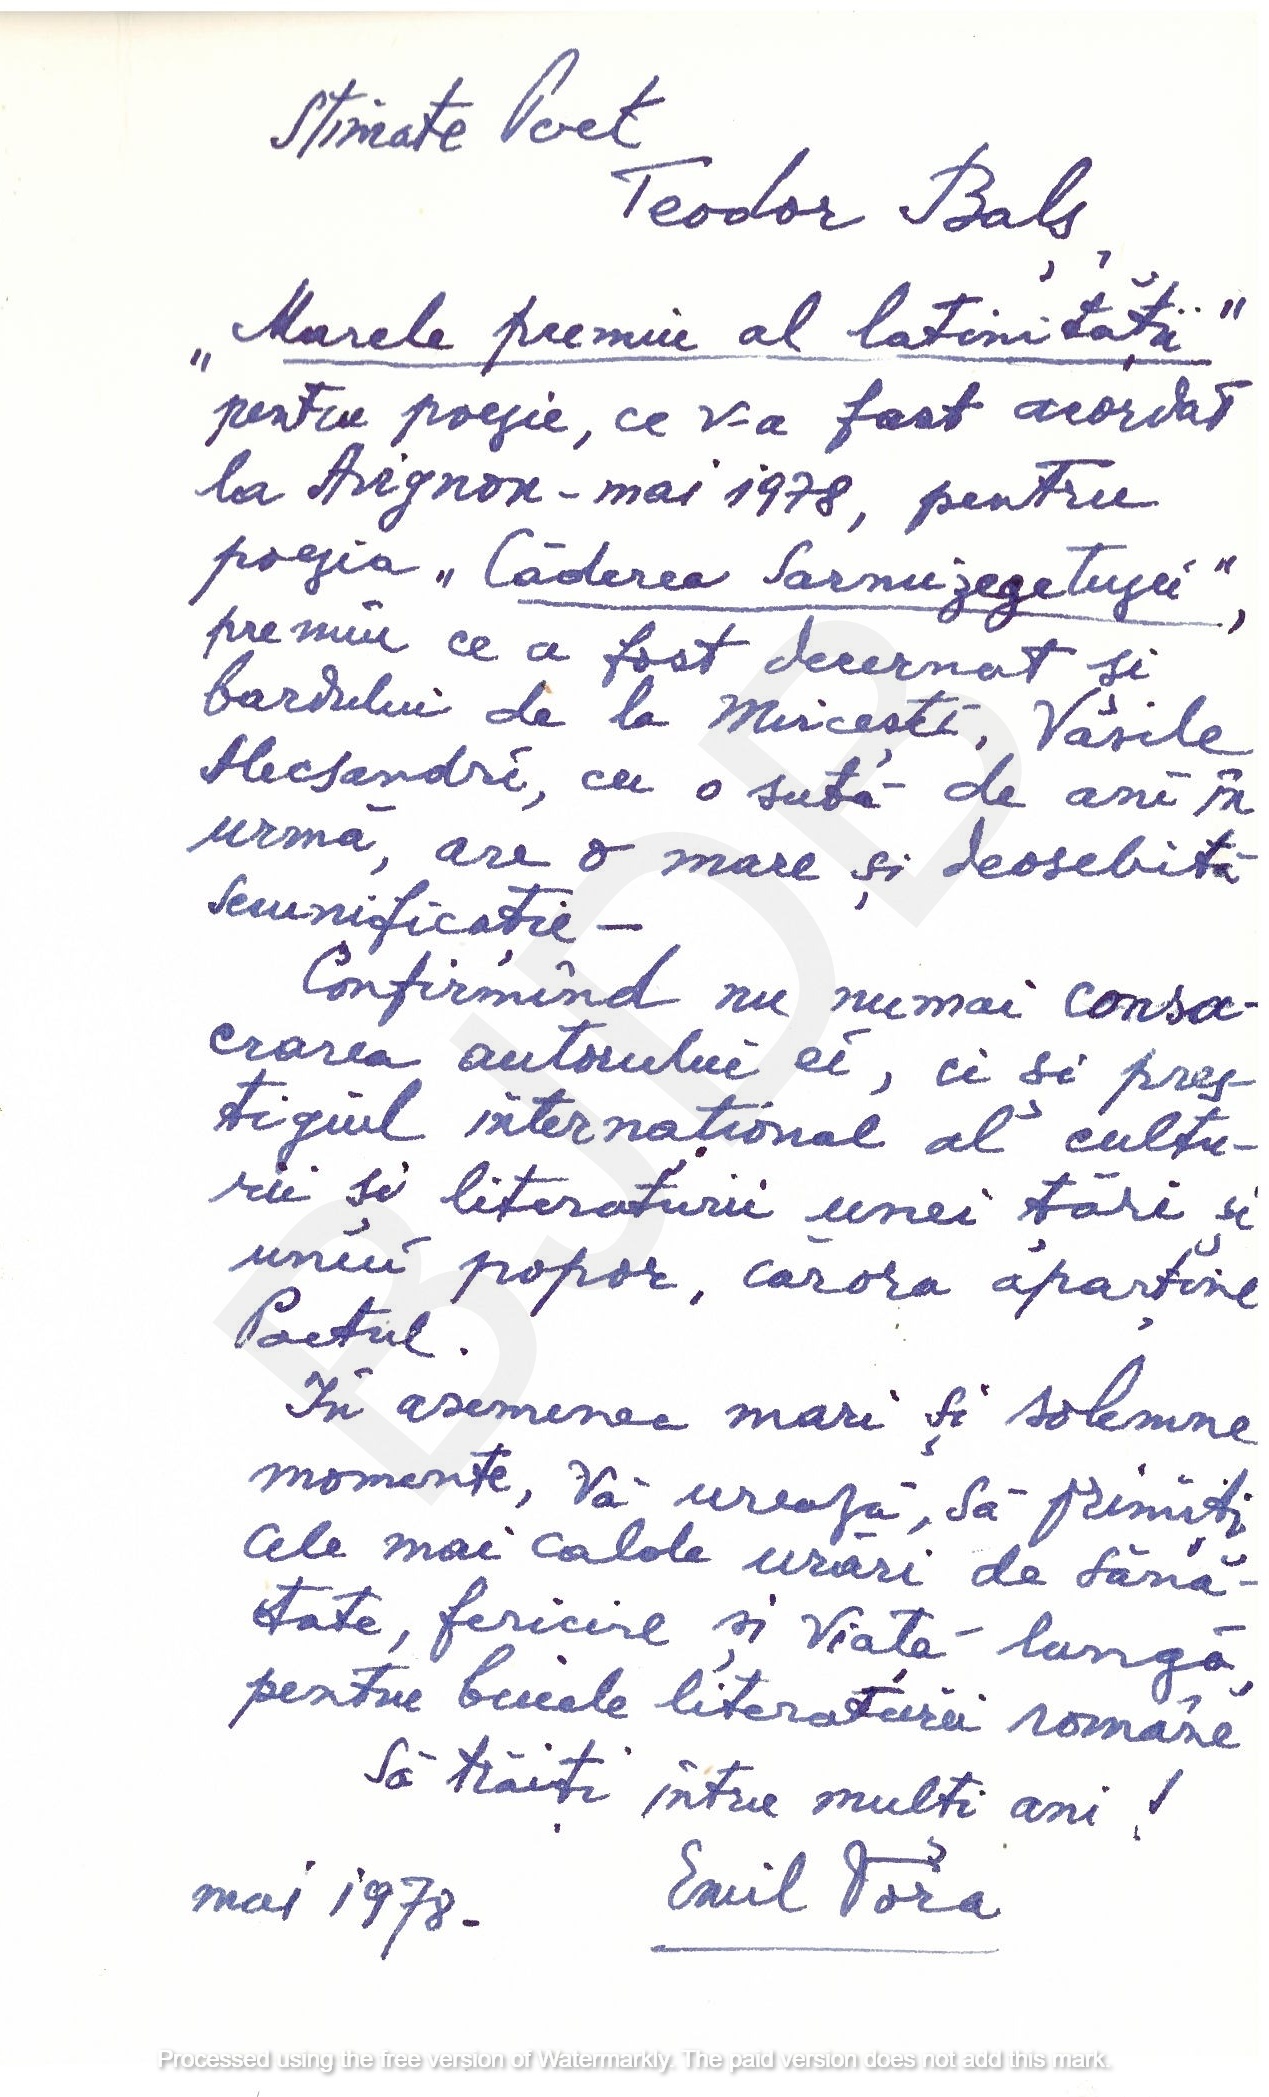 Stimate Poet
Teodor Balș,
„Marele premiu al latinității"
pentru poezie, ce v-a fost acordat
la Avignon - mai 1978, pentru
poezia „Căderea Sarmizegetusei",
premiu ce a fost decernat și
bardului de la Mircești, Vasile
Alecsandri, cu o sută de ani în
urmă, are o mare și deosebită
semnificație -
Confirmînd nu numai consa-
crarea autorului ei, ci și pres-
tigiul internațional al cultu-
rii și literaturii unei țări și
unui popor, cărora aparține
Poetul.
În asemenea mari și solemne
momente, Vă urează, să primiți
cele mai calde urări de sănă-
tate, fericire și viață lungă,
pentru binele literaturii române
Să trăiți întru mulți ani !
mai 1978. Emil
BJDB
Processed using the free version of Watermarkly. The paid version does not add this mark.